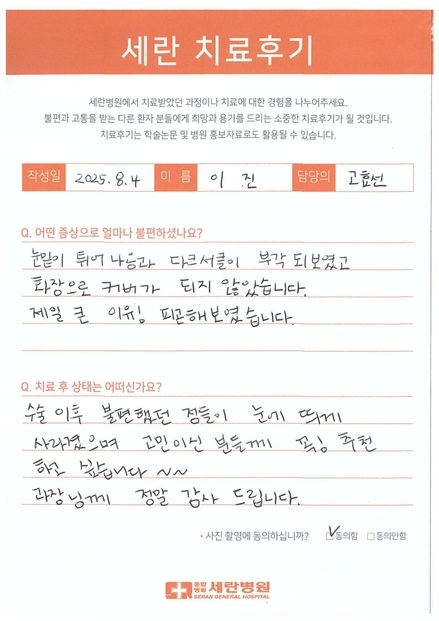 세란 치료후기
세란병원에서 치료받았던 과정이나 치료에 대한 경험을 나누어주세요.
불편과 고통을 받는 다른 환자 분들에게 희망과 용기를 드리는 소중한 치료후기가 될 것입니다.
치료후기는 학술논문 및 병원 홍보자료로도 활용될 수 있습니다.
작성일 2025.8.4 이 름 이 진 담당의 고효선
Q. 어떤 증상으로 얼마나 불편하셨나요?
눈밑이 튀어 나옴과 다크서클이 부각 되보였고
화장으로 커버가 되지 않았습니다.
제일 큰 이유! 피곤해보였습니다.
Q. 치료 후 상태는 어떠신가요?
수술 이후 불편했던 점들이 눈에 띄게
사라졌으며 고민이신 분들께 꼭! 추천
하고 싶습니다 ~~
과장님께 정말 감사 드립니다.
• 사진 촬영에 동의하십니까? ☑동의함 ☐동의안함
종합병원 세란병원
SERAN GENERAL HOSPITAL